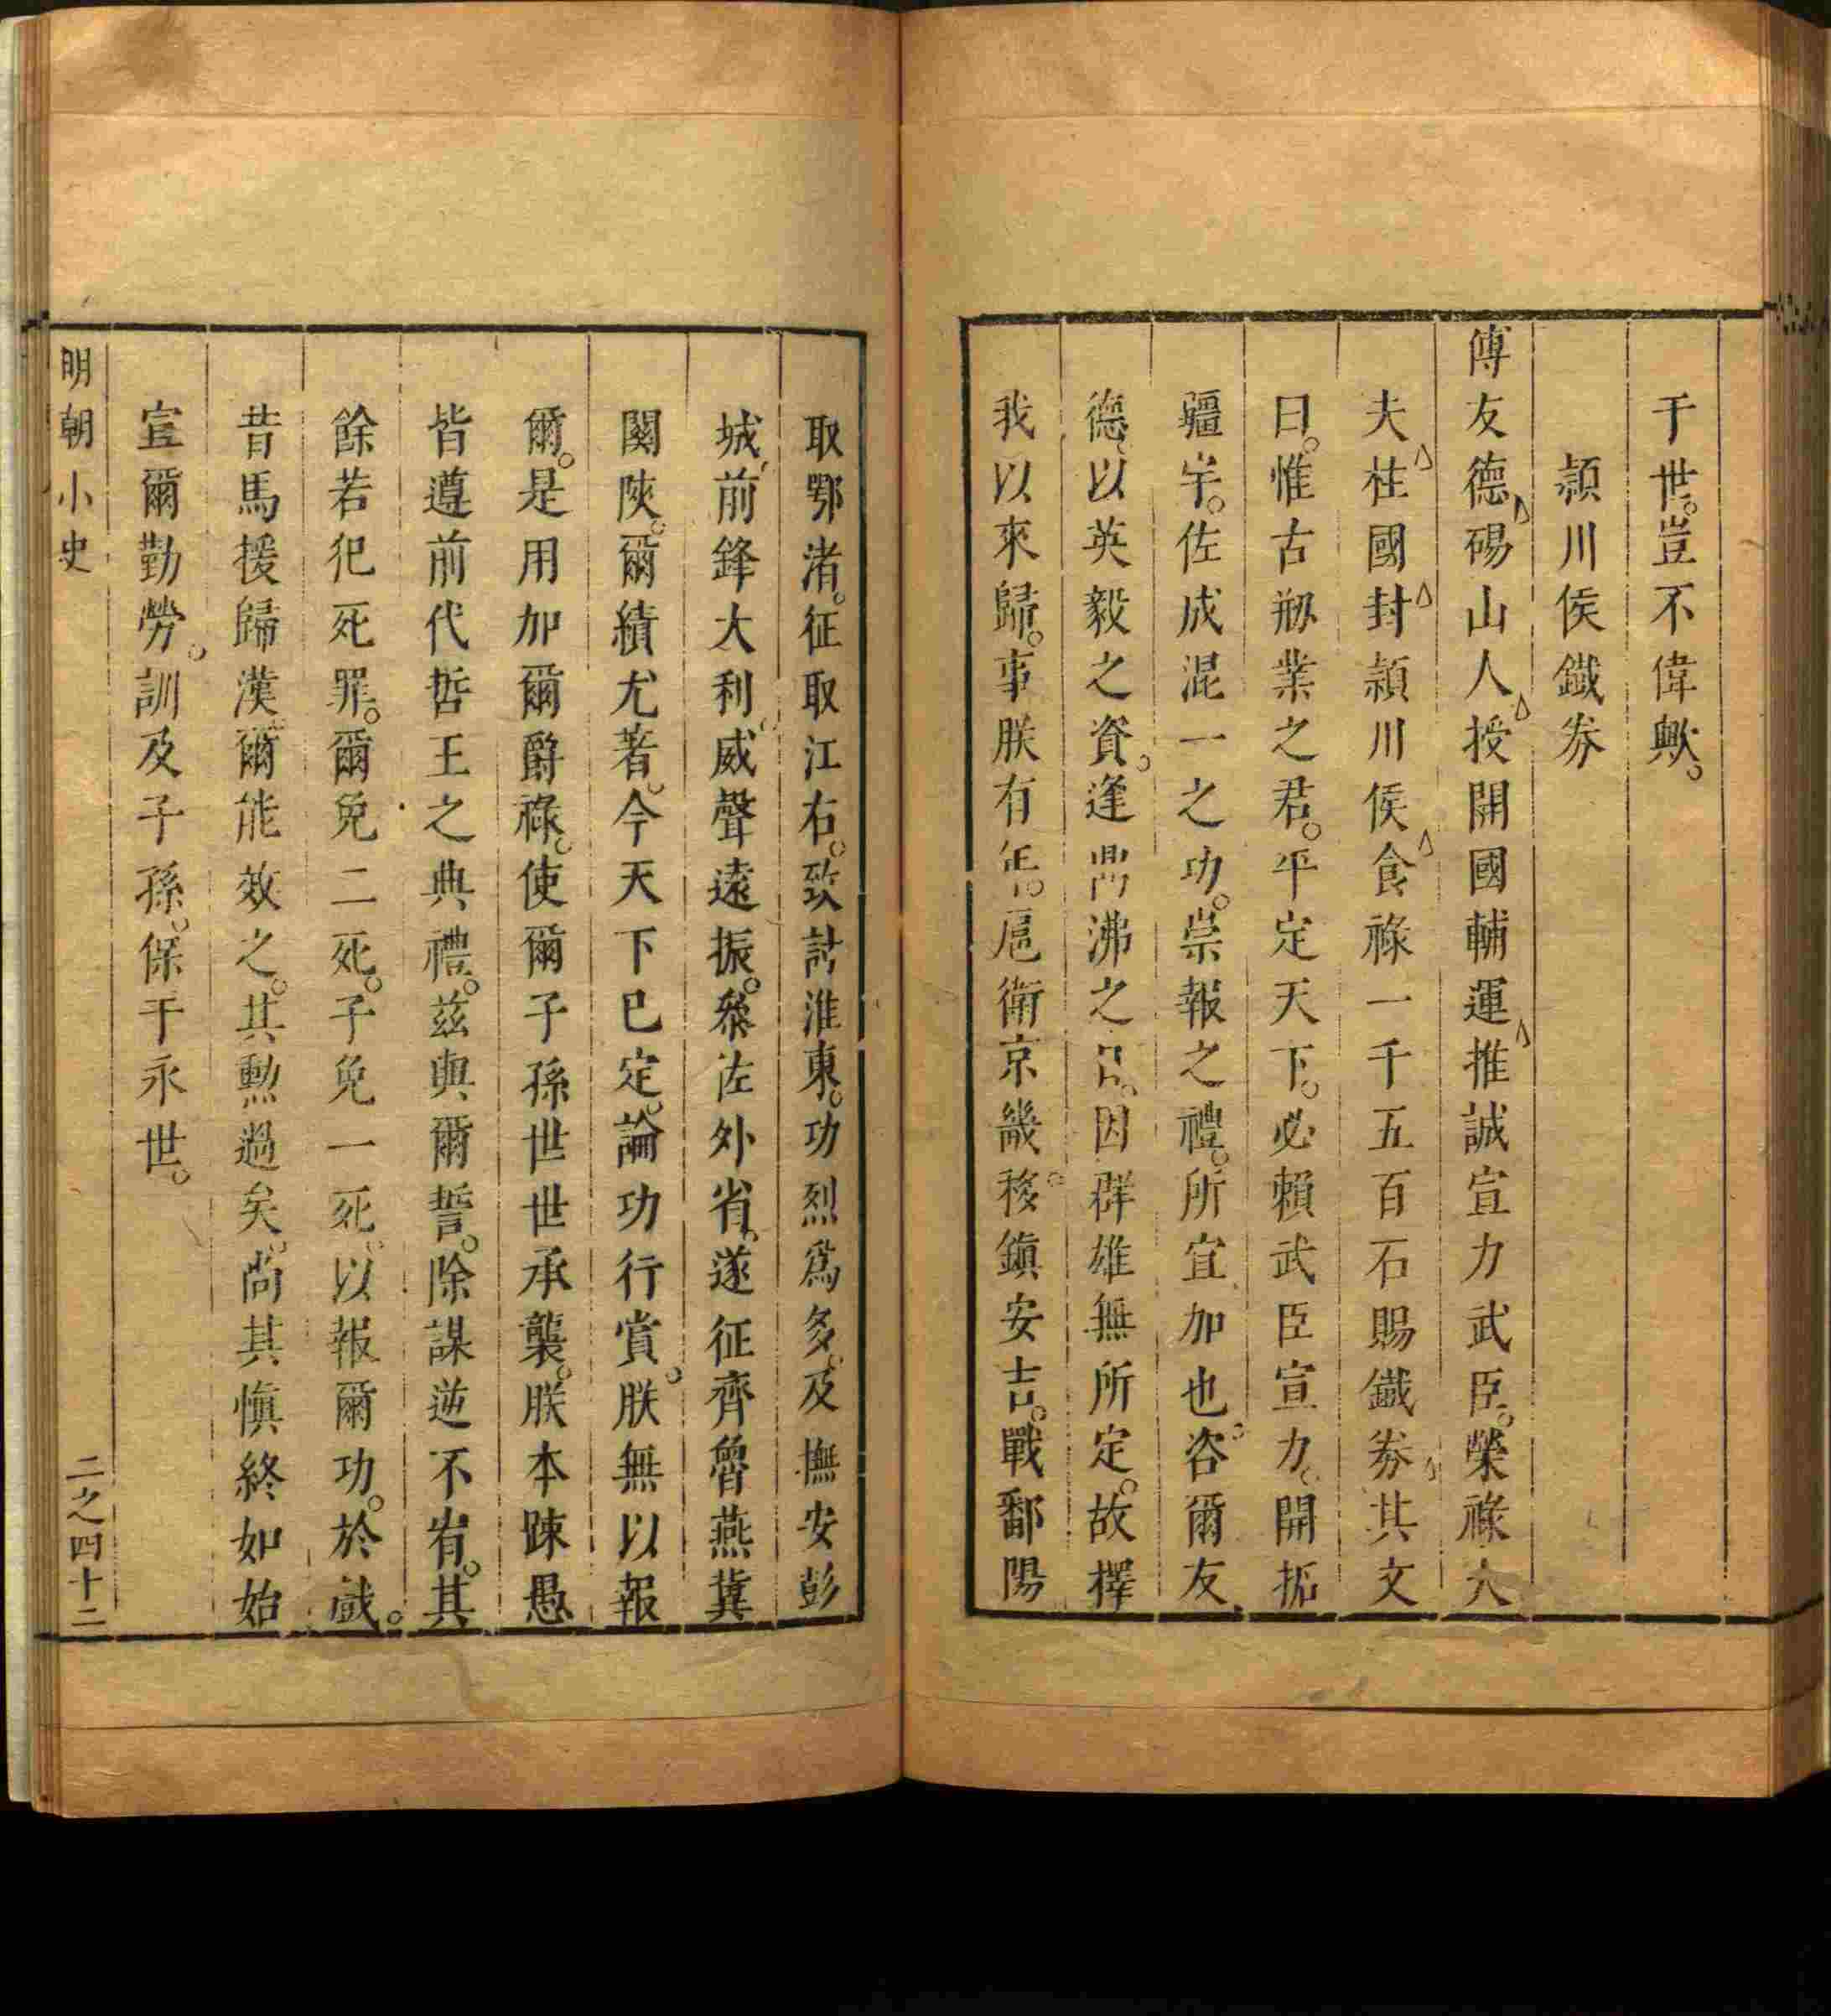 于世。豈不偉歟。
潁川侯鐵券
傅友德碭山人授開國輔運推誠宣力武臣。榮祿大
夫柱國封潁川侯食祿一千五百石賜鐵券其文
曰。惟古刱業之君。平定天下。必賴武臣宣力。開拓
疆宇。佐成混一之功。崇報之禮。所宜加也咨爾友
德、以英毅之資。逢鼎沸之日。因群雄無所定。故擇
我以來歸。事朕有年。扈衛京畿。移鎮安吉。戰鄱陽
取鄂渚。征取江右。致討淮東。功烈爲多。及撫安彭
城、前鋒大利、威聲遠振。叅佐外省、遂征齊魯燕冀
關陝。爾績尤著。今天下已定。論功行賞。朕無以報
爾。是用加爾爵祿。使爾子孫世世承襲。朕本踈愚
皆遵前代哲王之典禮。茲與爾誓。除謀逆不宥。其
餘若犯死罪。爾免二死。子免一死。以報爾功。於戲。
昔馬援歸漢爾能效之。其勲過矣。尚其慎終如始
宣爾勤勞。訓及子孫。保于永世。
明朝小史
二之四十二